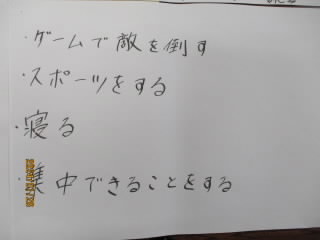 ・ゲームで敵を倒す
・スポーツをする
・寝る
・集中できることをする